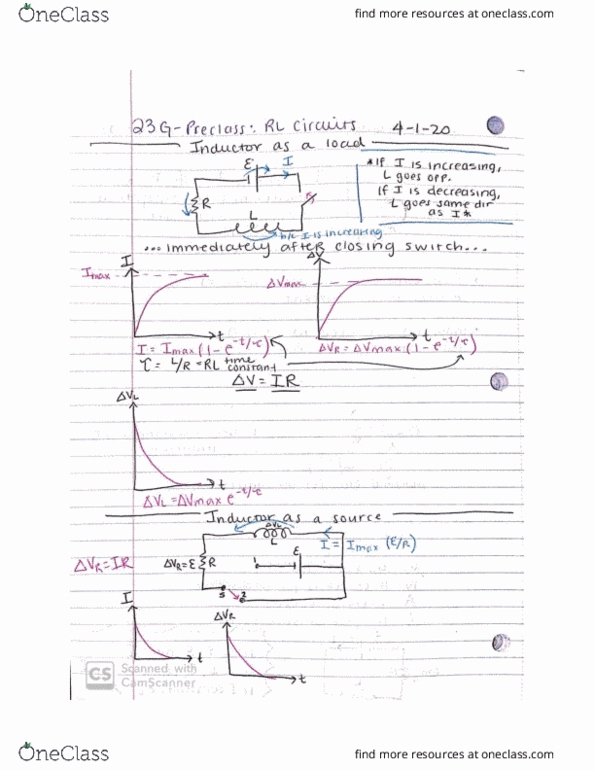 OneClass
find more resources at oneclass.com
23G-Preclass: RL Circuits 4-1-20
Inductor as a load
ε I
R
L
b/c I is increasing
*If I is increasing,
L goes opp.
If I is decreasing,
L goes same dir
as I*
...immediately after closing switch...
I
Imax
t
I = Imax(1-e^-t/τ)
ΔV
ΔVmax
t
ΔVR = ΔVmax(1-e^-t/τ)
τ = L/R = RL time constant
ΔV = IR
ΔVL
t
ΔVL = ΔVmax e^-t/τ
Inductor as a source
ΔVL
L
I = Imax (ε/R)
ΔVR = IR
ΔVR = ε R
1 ε
S 2
I
t
ΔVR
t
CS Scanned with
CamScanner
OneClass
find more resources at oneclass.com